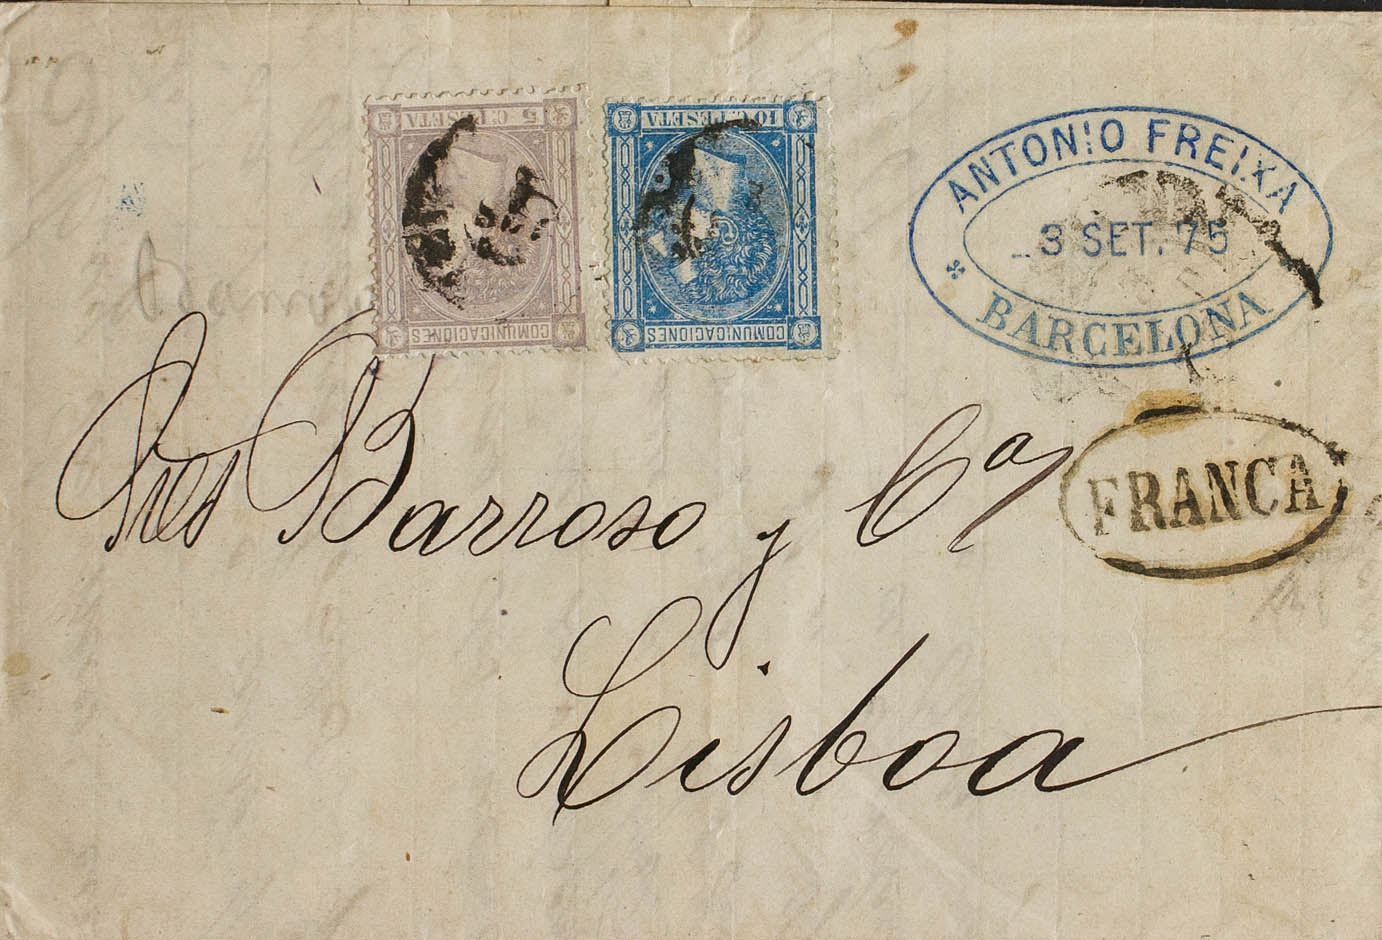 5 C. PESETA
COMUNICACIONES
10 C. PESETA
COMUNICACIONES
ANTONIO FREIXA
3 SET. 75
BARCELONA
FRANCA
Sres Barroso y Cª
Lisboa